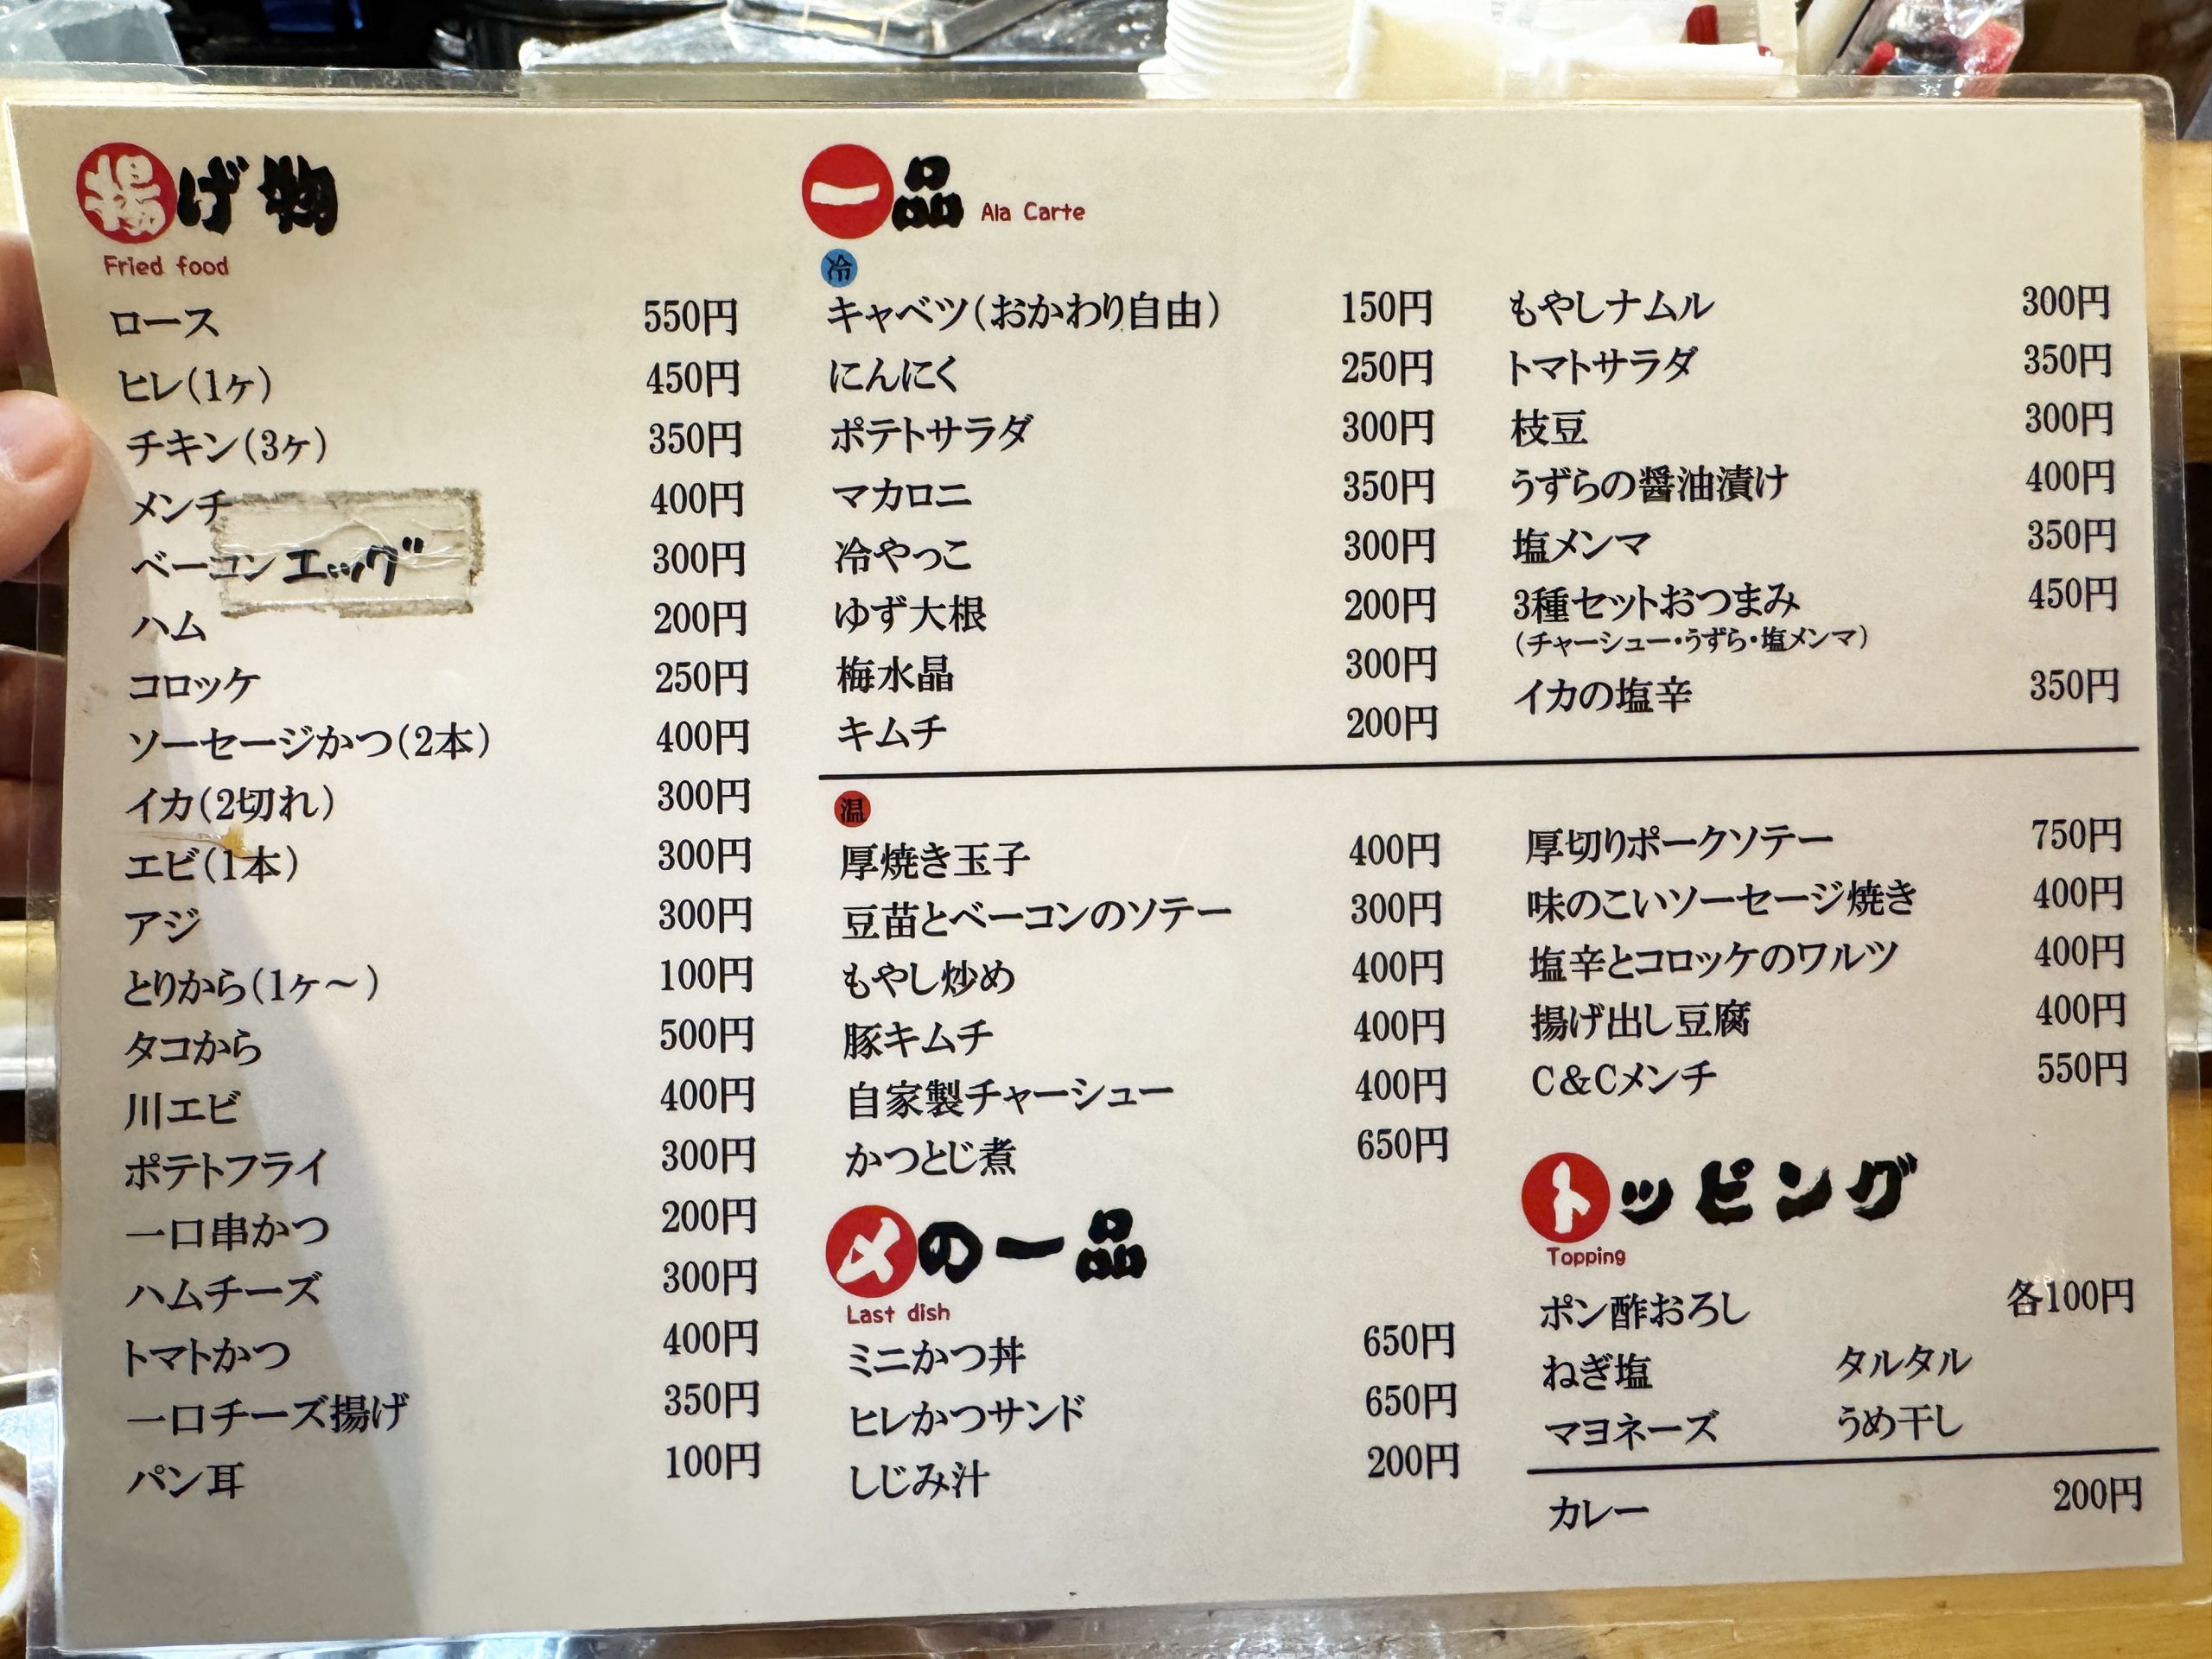 揚げ物
Fried food
ロース 550円
ヒレ(1ヶ) 450円
チキン(3ヶ) 350円
メンチ 400円
ベーコンエッグ 300円
ハム 200円
コロッケ 250円
ソーセージかつ(2本) 400円
イカ(2切れ) 300円
エビ(1本) 300円
アジ 300円
とりから(1ヶ～) 100円
タコから 500円
川エビ 400円
ポテトフライ 300円
一口串かつ 200円
ハムチーズ 300円
トマトかつ 400円
一口チーズ揚げ 350円
パン耳 100円
一品 Ala Carte
冷
キャベツ(おかわり自由) 150円
にんにく 250円
ポテトサラダ 300円
マカロニ 350円
冷やっこ 300円
ゆず大根 200円
梅水晶 300円
キムチ 200円
もやしナムル 300円
トマトサラダ 350円
枝豆 300円
うずらの醤油漬け 400円
塩メンマ 350円
3種セットおつまみ 450円
(チャーシュー・うずら・塩メンマ)
イカの塩辛 350円
温
厚焼き玉子 400円
豆苗とベーコンのソテー 300円
もやし炒め 400円
豚キムチ 400円
自家製チャーシュー 400円
かつとじ煮 650円
厚切りポークソテー 750円
味のこいソーセージ焼き 400円
塩辛とコロッケのワルツ 400円
揚げ出し豆腐 400円
C&Cメンチ 550円
〆の一品
Last dish
ミニかつ丼 650円
ヒレかつサンド 650円
しじみ汁 200円
トッピング
Topping
ポン酢おろし 各100円
ねぎ塩 タルタル
マヨネーズ うめ干し
カレー 200円